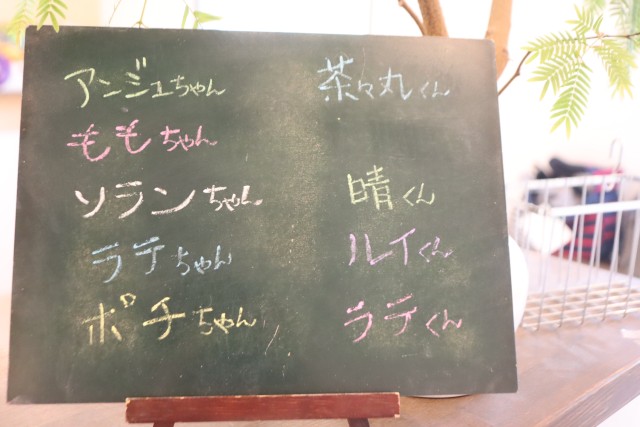 アンジュちゃん
ももちゃん
ソランちゃん
ラテちゃん
ポチちゃん
茶々丸くん
晴くん
ルイくん
ラテくん